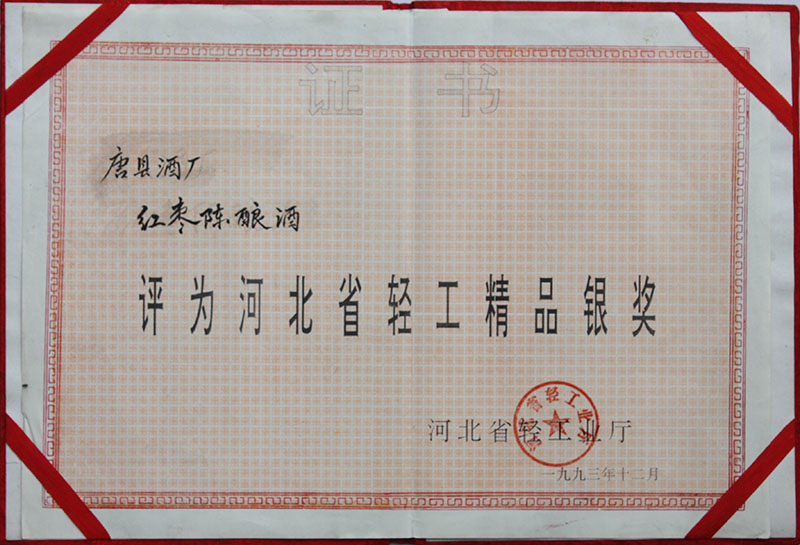 证书
唐县酒厂
红枣陈酿酒
评为河北省轻工精品银奖
河北省轻工业厅
一九九三年十二月
河北省轻工业厅